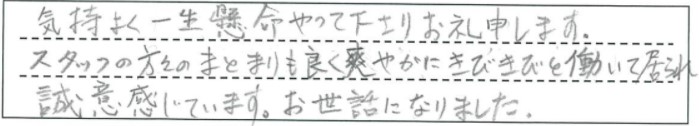 気持よく一生懸命やって下さりお礼申します。
スタッフの方々のまとまりも良く爽やかにきびきびと働いて居られ
誠意感じています。お世話になりました。